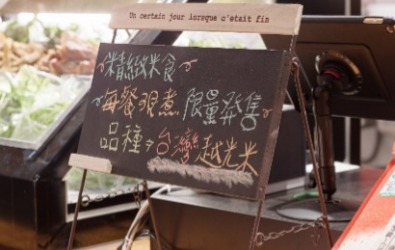 Un certain jour lorsque c'était fin
精緻米食
每餐現煮 限量發售
品種→台灣越光米